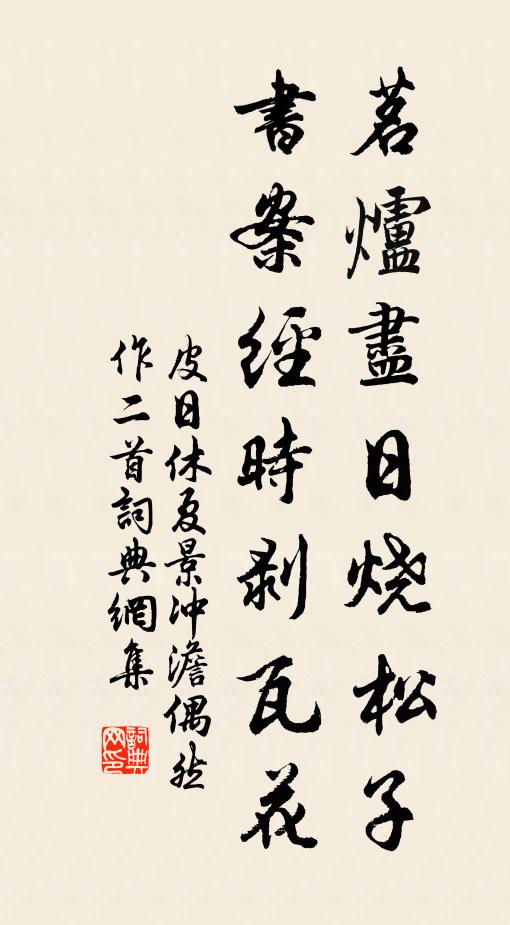 茗爐盡日烧松子
書案經時剥瓦花
皮日休夏景冲澹偶然
作二首詞典網集
詞典
网印